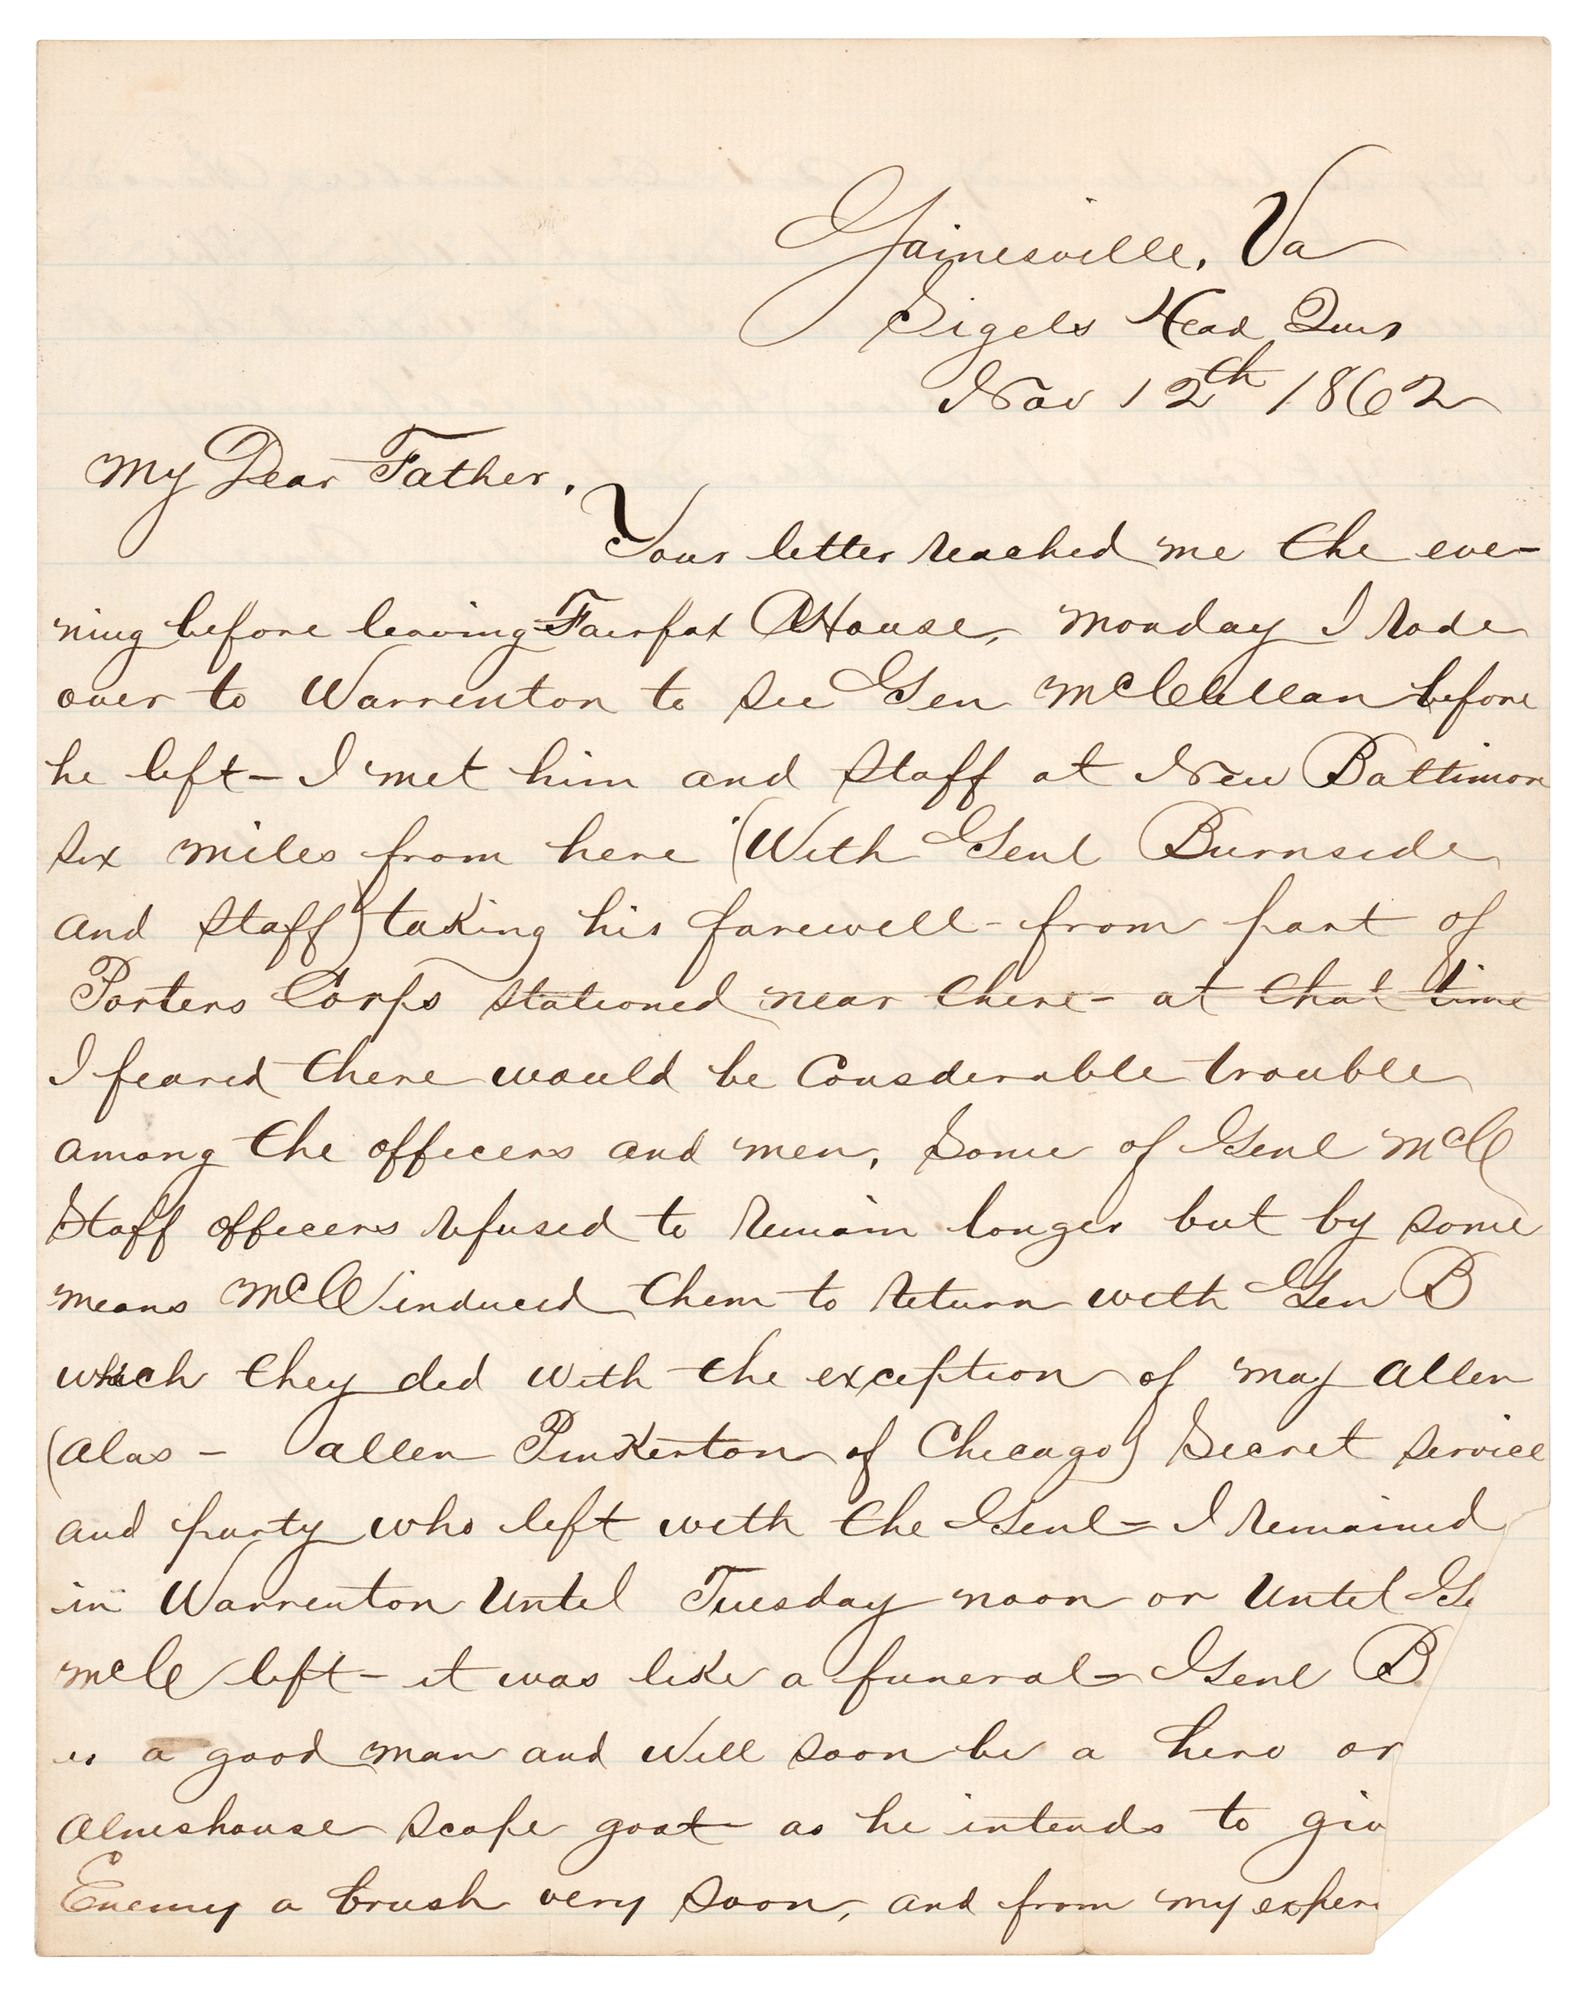 Gainesville, Va
Sigels Head Qurs
Nov 12th 1862
My Dear Father.
Your letter reached me the eve-
ning before leaving Fairfax CHouse, Monday I rode
over to Warrenton to see Gen McClellan before
he left - I met him and staff at New Baltimore
six miles from here (With Genl Burnside
and staff) taking his farewell - from part of
Porters Corps stationed near there - at that time
I feared there would be Consderable trouble
among the officers and men, Some of Genl McC
Staff officers refused to remain longer but by some
means McC induced them to return with Gen B
which they did with the exception of Maj Allen
(alas - allen Pinkerton of Chicago) Secret service
and party who left with the Genl - I remained
in Warrenton Until Tuesday noon or Until Ge
McC left - it was like a funeral - Genl B
is a good man and Will soon be a hero or
Almeshouse scape goat as he intends to giv
Enemy a brush very soon, and from my experi